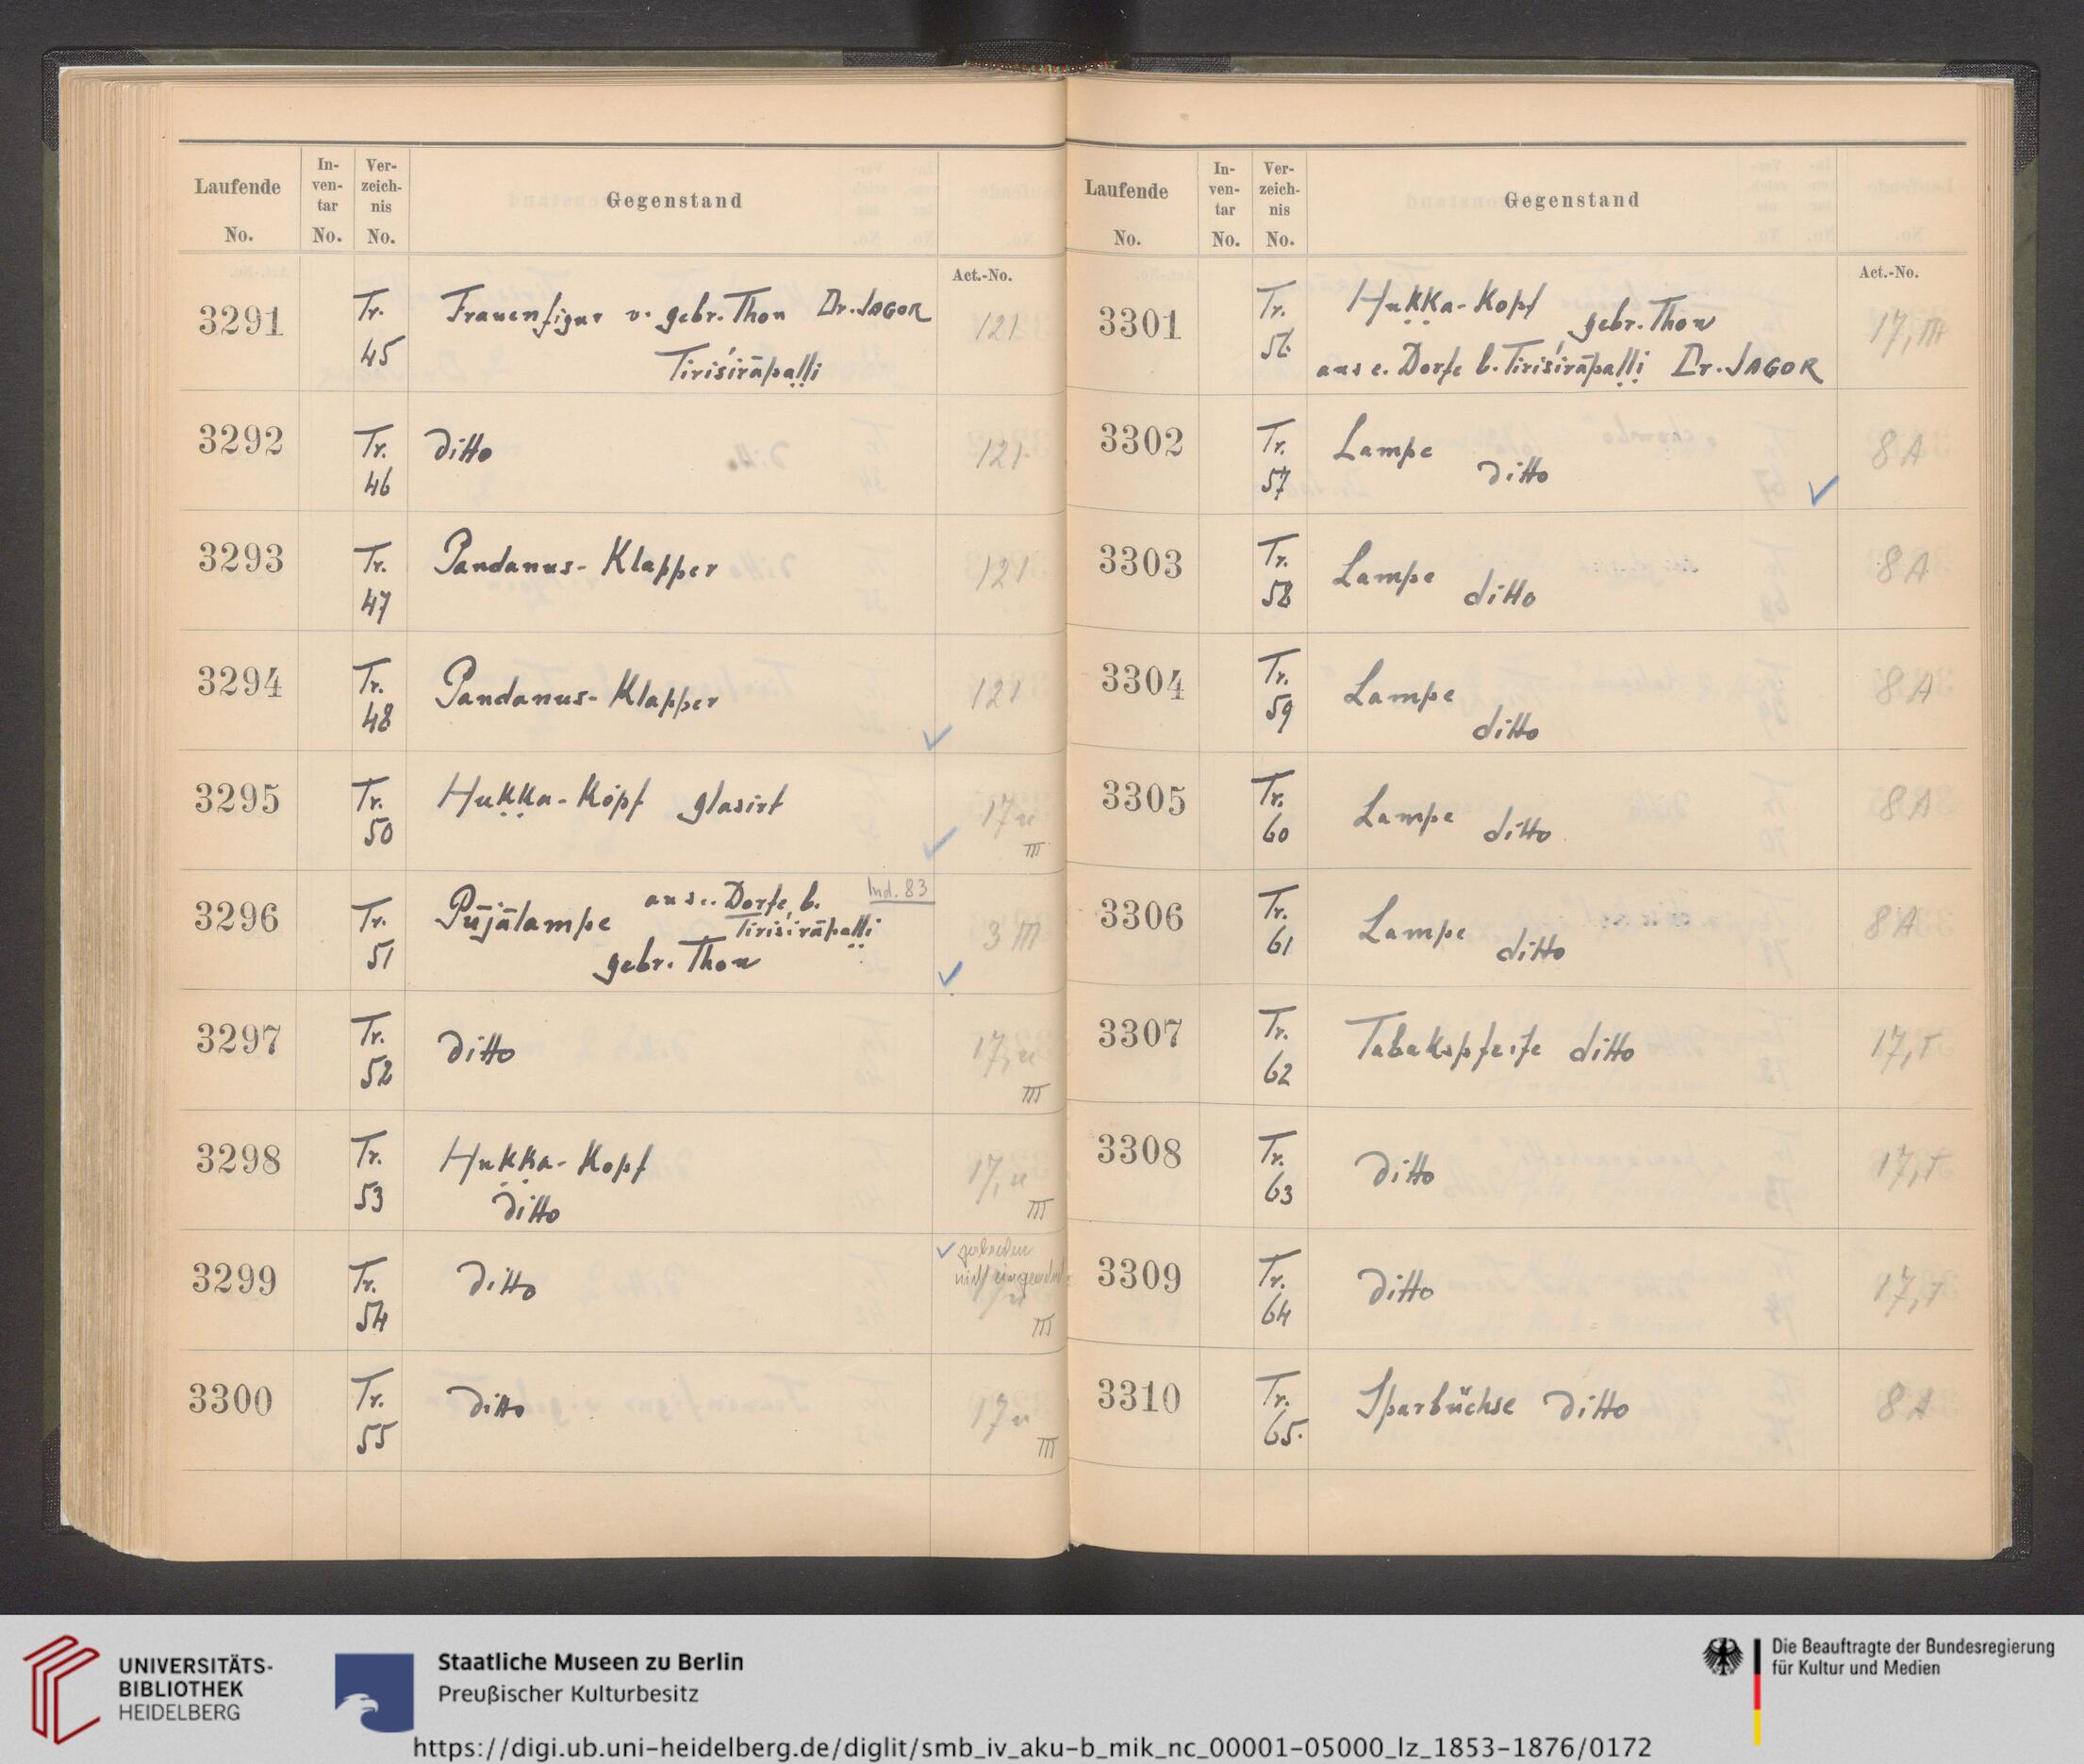 Laufende No. In-ven-tar No. Ver-zeich-nis No. Gegenstand
Act.-No.
3291 Tr. 45 Frauenfigur v. gebr. Thon Dr. JAGOR 121
Tiriśirāpaḷḷi
3292 Tr. 46 ditto 121
3293 Tr. 47 Pandanus-Klapper 121
3294 Tr. 48 Pandanus-Klapper 121
✓
3295 Tr. 50 Huḳḳa-Kopf glasirt 17 u
✓ III
3296 Tr. 51 Pūjālampe aus e. Dorfe b. Ind. 83
Tiriśirāpaḷḷi 3 III
gebr. Thon ✓
3297 Tr. 52 ditto 17, u
III
3298 Tr. 53 Huḳḳa-Kopf 17, u
ditto III
3299 Tr. 54 ditto ✓
nicht
III
3300 Tr. 55 ditto 17 u
III
Laufende No. In-ven-tar No. Ver-zeich-nis No. Gegenstand
Act.-No.
3301 Tr. 56 Huḳḳa-Kopf gebr. Thon 17, III
aus e. Dorfe b. Tiriśirāpaḷḷi Dr. JAGOR
3302 Tr. 57 Lampe ditto 8 A
✓
3303 Tr. 58 Lampe ditto 8 A
3304 Tr. 59 Lampe 8 A
ditto
3305 Tr. 60 Lampe ditto 8 A
3306 Tr. 61 Lampe ditto 8 A
3307 Tr. 62 Tabakspfeife ditto 17, I
3308 Tr. 63 ditto 17, I
3309 Tr. 64 ditto 17, I
3310 Tr. 65. Sparbüchse ditto 8 A
UNIVERSITÄTS-
BIBLIOTHEK
HEIDELBERG
Staatliche Museen zu Berlin
Preußischer Kulturbesitz
Die Beauftragte der Bundesregierung
für Kultur und Medien
https://digi.ub.uni-heidelberg.de/diglit/smb_iv_aku-b_mik_nc_00001-05000_lz_1853-1876/0172